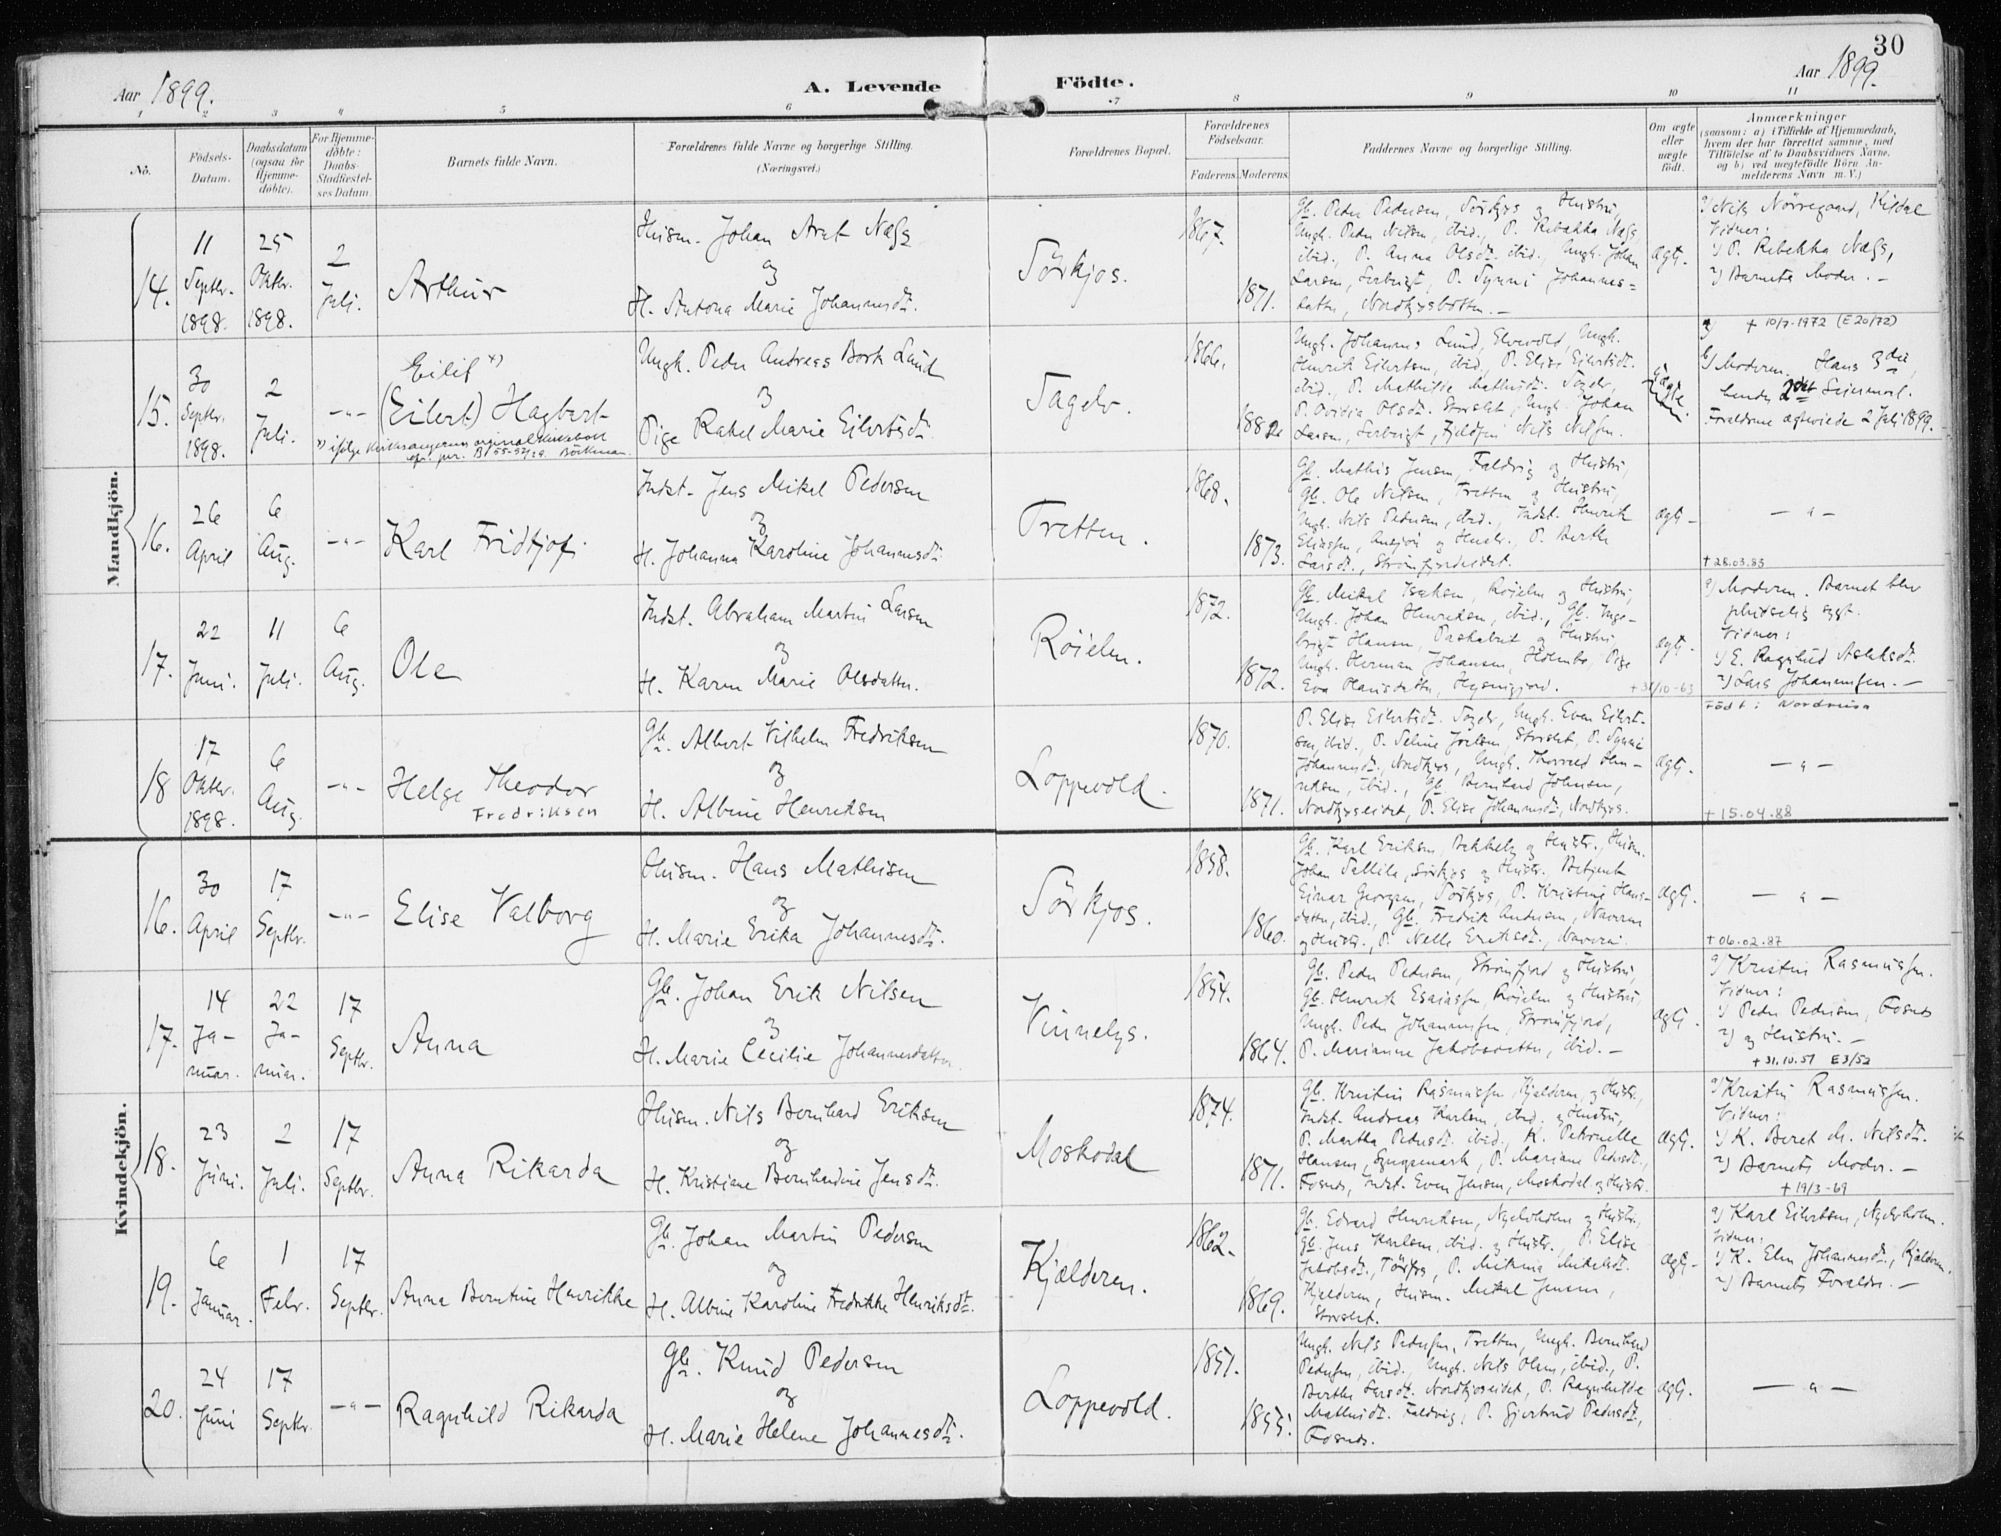 30
Aar 1899.
A. Levende Födte.
Aar 1899.
1 2 3 4 5 6 7 8 9 10 11
No.
Födsels-
Datum.
Daabsdatum
(ogsaa for
Hjemme-
döbte).
For Hjemme-
döbte:
Daabs-
Stadfæstel-
ses Datum.
Barnets fulde Navn.
Forældrenes fulde Navne og borgerlige Stilling.
(Næringsvei.)
Forældrenes Bopæl.
Forældrenes
Födselsaar.
Faderens.
Moderens.
Faddernes Navne og borgerlige Stilling.
Om ægte
eller
uægte
födt.
Anmærkninger
(saasom: a) i Tilfælde af Hjemmedaab,
hvem der har forrettet samme, med
Tilföielse af to Daabsvidners Navne,
og b) ved uægtefödte Börn An-
melderens Navn m. V.)
Mandkjön.
14.
11
Septbr.
1898.
25
Oktbr.
1898.
2
Juli.
Arthur
Husm. Johan Arnt Næss
og
H. Antona Marie Johannesdt.
Sörkjos.
1867.
1871.
Gb. Peder Pedersen, Sörkjos og Hustru,
Ungk. Peder Nilsen, ibid., P. Rebekka Næss
ibid., P. Anna Olsdt. ibid., Ungk. Johan
Larsen, P. Synni Johannes-
datter, Nordkjosbotten.
ægt.
a) Nils Nörregaard, Kildal
Vidner:
1) P. Rebekka Næss,
2) Barnets Moder. —
15.
30
Septbr.
1898.
2
Juli.
-"-
Eilif x)
(Eilert) Hagbart
x) ifölge
Ungk. Peder Andreas Bork Lund
og
Pige Rakel Marie Eilertsdt.
Tagelv.
1866.
1882.
Ungk. Johannes Lund, Elvevold, Ungk.
Henrik Eilertsen, ibid., P. Elise Eilertsdt.
ibid., P. Mathilde Mathisdt.
P. Ovidia Olsdt. Storslet, Ungk. Johan
Larsen, Nils Nilsen.
+ 10/7-1972 (E 20/72)
b) Moderen. Hans 3die,
hendes 2det Leiermaal.
Forældrene ægteviede 2 Juli 1899.
16.
26
April
6
Aug.
-"-
Karl Fridtjof
Indst. Jens Mikel Pedersen
og
H. Johanna Karoline Johannesdt.
Tretten.
1868.
1873.
Gb. Mathis Jensen, Faldvig og Hustru,
Gb. Ole Nilsen, Tretten og Hustru,
Ungk. Nils Pedersen, ibid., Indst. Henrik
Eliassen, og Hustr., P. Berthe
Larsdt., Strömfjordeidet.
ægt.
— " —
+ 28.03.83
17.
22
Juni.
11
Juli.
6
Aug.
Ole
Indst. Abraham Martin Larsen
og
H. Karen Marie Olsdatter.
Röielen.
1872.
1872.
Gb. Mikal Isaksen, Röielen og Hustru,
Ungk. Johan Henriksen, ibid., Gb. Inge-
brigt Hansen, og Hustru
Ungk. Herman Johansen, Holmbo, Pige
Eva Hansdatter,
ægt.
+ 31/10-63
a) Moderen. Barnet blev
pludselig sygt.
Vidner:
1) E. Ragnhild Aslaksdt.
2) Lars Johannessen. —
Född i Nordreisa
18
17
Oktbr.
1898.
6
Aug.
-"-
Helge Theodor
Fredriksen
Gb. Albert Vilhelm Fredriksen
og
H. Albine Henriksen
Loppevold.
1870.
1871.
P. Elise Eilertsdt. Ungk. Even Eilert-
sen, ibid., P. Seline Joelsen, Storslet, P. Synni
Johannesdt., Nordkjos, Ungk. Thorvald Hen-
riksen, ibid., Gb. Bernhard Johnsen,
Nordkjoseidet, P. Elise Johannesdt., Nordkjos.
ægt.
— " —
+ 15.04.88
Kvindekjön.
16.
30
April
17
Septbr.
-"-
Elise Valborg
Husm. Hans Mathisen
og
H. Marie Erika Johannesdt.
Sörkjos.
1858.
1860.
Gb. Karl Eriksen, Bakkeby og Hustr., Husm.
Johan Sörkjos og Hustr. Betjent
Einar Georgsen, Sörkjos, P. Kristine Hans-
datter, ibid., Gb. Fredrik Andersen,
og Hustr., P. Nelle Eriksdt.,
ægt.
— " —
+ 06.02.87
17.
14
Ja-
nuar.
22
Ja-
nuar.
17
Septbr.
Anna
Gb. Johan Erik Nilsen
og
H. Marie Cecilie Johannesdatter
Vinnelys.
1854.
1864.
Gb. Peder Pedersen, Strömfjord og Hustru,
Gb. Henrik Esaiassen, Röielen og Hustru,
Ungk. Peder Johannessen, Strömfjord,
P. Marianne Jakobsdatter, ibid. —
ægt.
a) Kristen Rasmussen.
Vidner:
1) Peder Pedersen, Fosnes
2) og Hustru. —
+ 31.10.51 E3/52
18.
23
Juni.
2
Juli.
17
Septbr.
Anna Rikarda
Husm. Nils Bernhard Eriksen
og
H. Kristiane Bernhardine Jensdt.
Moskodal
1874.
1871.
Gb. Kristen Rasmussen, Kjelderen, og Hustr.,
Indst. Andreas Karlsen, ibid. og Hustru,
P. Martha Pedersdt. ibid., K. Petronelle
Hansen, P. Mariane Pedersdt.,
Fosnes, Indst. Even Jensen, Moskodal og Hustr.
ægt.
a) Kristen Rasmussen.
Vidner:
1) K. Beret M. Nilsdt.
2) Barnets Moder. —
+ 19/3-69
19.
6
Januar.
1
Febr.
17
Septbr.
Anna Berntine Henrikke
Gb. Johan Martin Pedersen
og
H. Albine Karoline Fredrikke Henriksdt.
Kjælderen.
1862.
1869.
Gb. Edvard Henriksen, Nyelvholm og Hustr.,
Gb. Jens Karlsen, ibid. og Hustr., P. Elise
Jakobsdt., P. Mikkelsdt.
Kjelderen, Husm. Mikal Jensen,
Storslet.
ægt.
a) Karl Eilertsen, Nyelvholm.
Vidner:
1) K. Elen Johannesdt., Kjelderen.
2) Barnets Forældre. —
20.
24
Juni
17
Septbr.
-"-
Ragnhild Rikarda
Gb. Knud Pedersen
og
H. Marie Helene Johannesdt.
Loppevold.
1851.
1855.
Ungk. Nils Pedersen, Tretten, Ungk. Bernhard
Pedersen, ibid., Ungk. Nils Olsen, ibid., P.
Berthe Larsdt. Nordkjoseidet, P. Ragnhilde
Mathisdt. Faldvig, P. Gjertrud Pedersdt.,
Fosnes.
ægt.
— " —